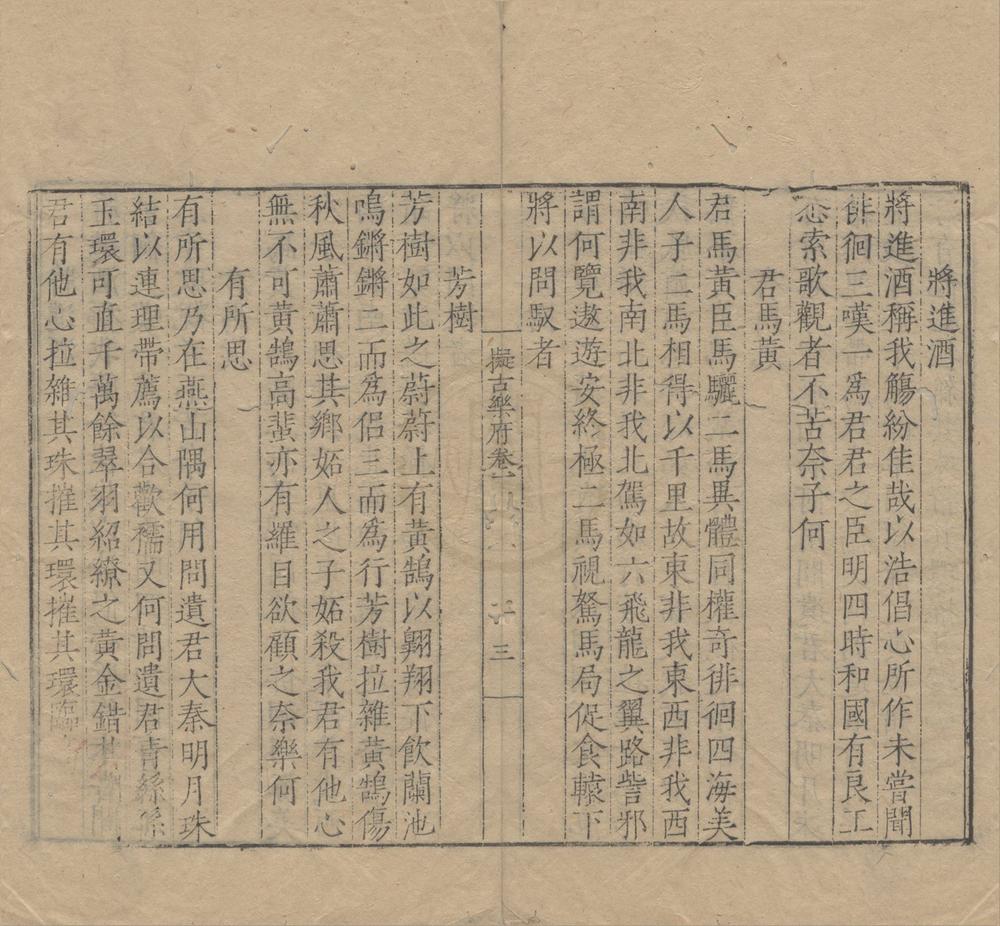 將進酒
將進酒稱我觴紛佳哉以浩倡心所作未嘗聞
徘徊三嘆一爲君君之臣明四時和國有良工
悉索歌觀者不苦奈子何
君馬黃
君馬黃臣馬驪二馬異體同權奇徘徊四海美
人子二馬相得以千里故東非我東西非我西
南非我南北非我北駕如六飛龍之翼路訾邪
謂何覽遨遊安終極二馬視駑馬局促食轅下
將以問馭者
芳樹
擬古樂府卷一
二三
芳樹如此之蔚蔚上有黃鵠以翺翔下飲蘭池
鳴鏘鏘二而爲侶三而爲行芳樹拉雜黃鵠傷
秋風蕭蕭思其鄉妬人之子妬殺我君有他心
無不可黃鵠高蜚亦有羅目欲顧之奈樂何
有所思
有所思乃在燕山隅何用問遺君大秦明月珠
結以連理帶薦以合歡襦又何問遺君青絲係
玉環可直千萬餘翠羽紹繚之黃金錯其
君有他心拉雜其珠摧其環摧其環臨